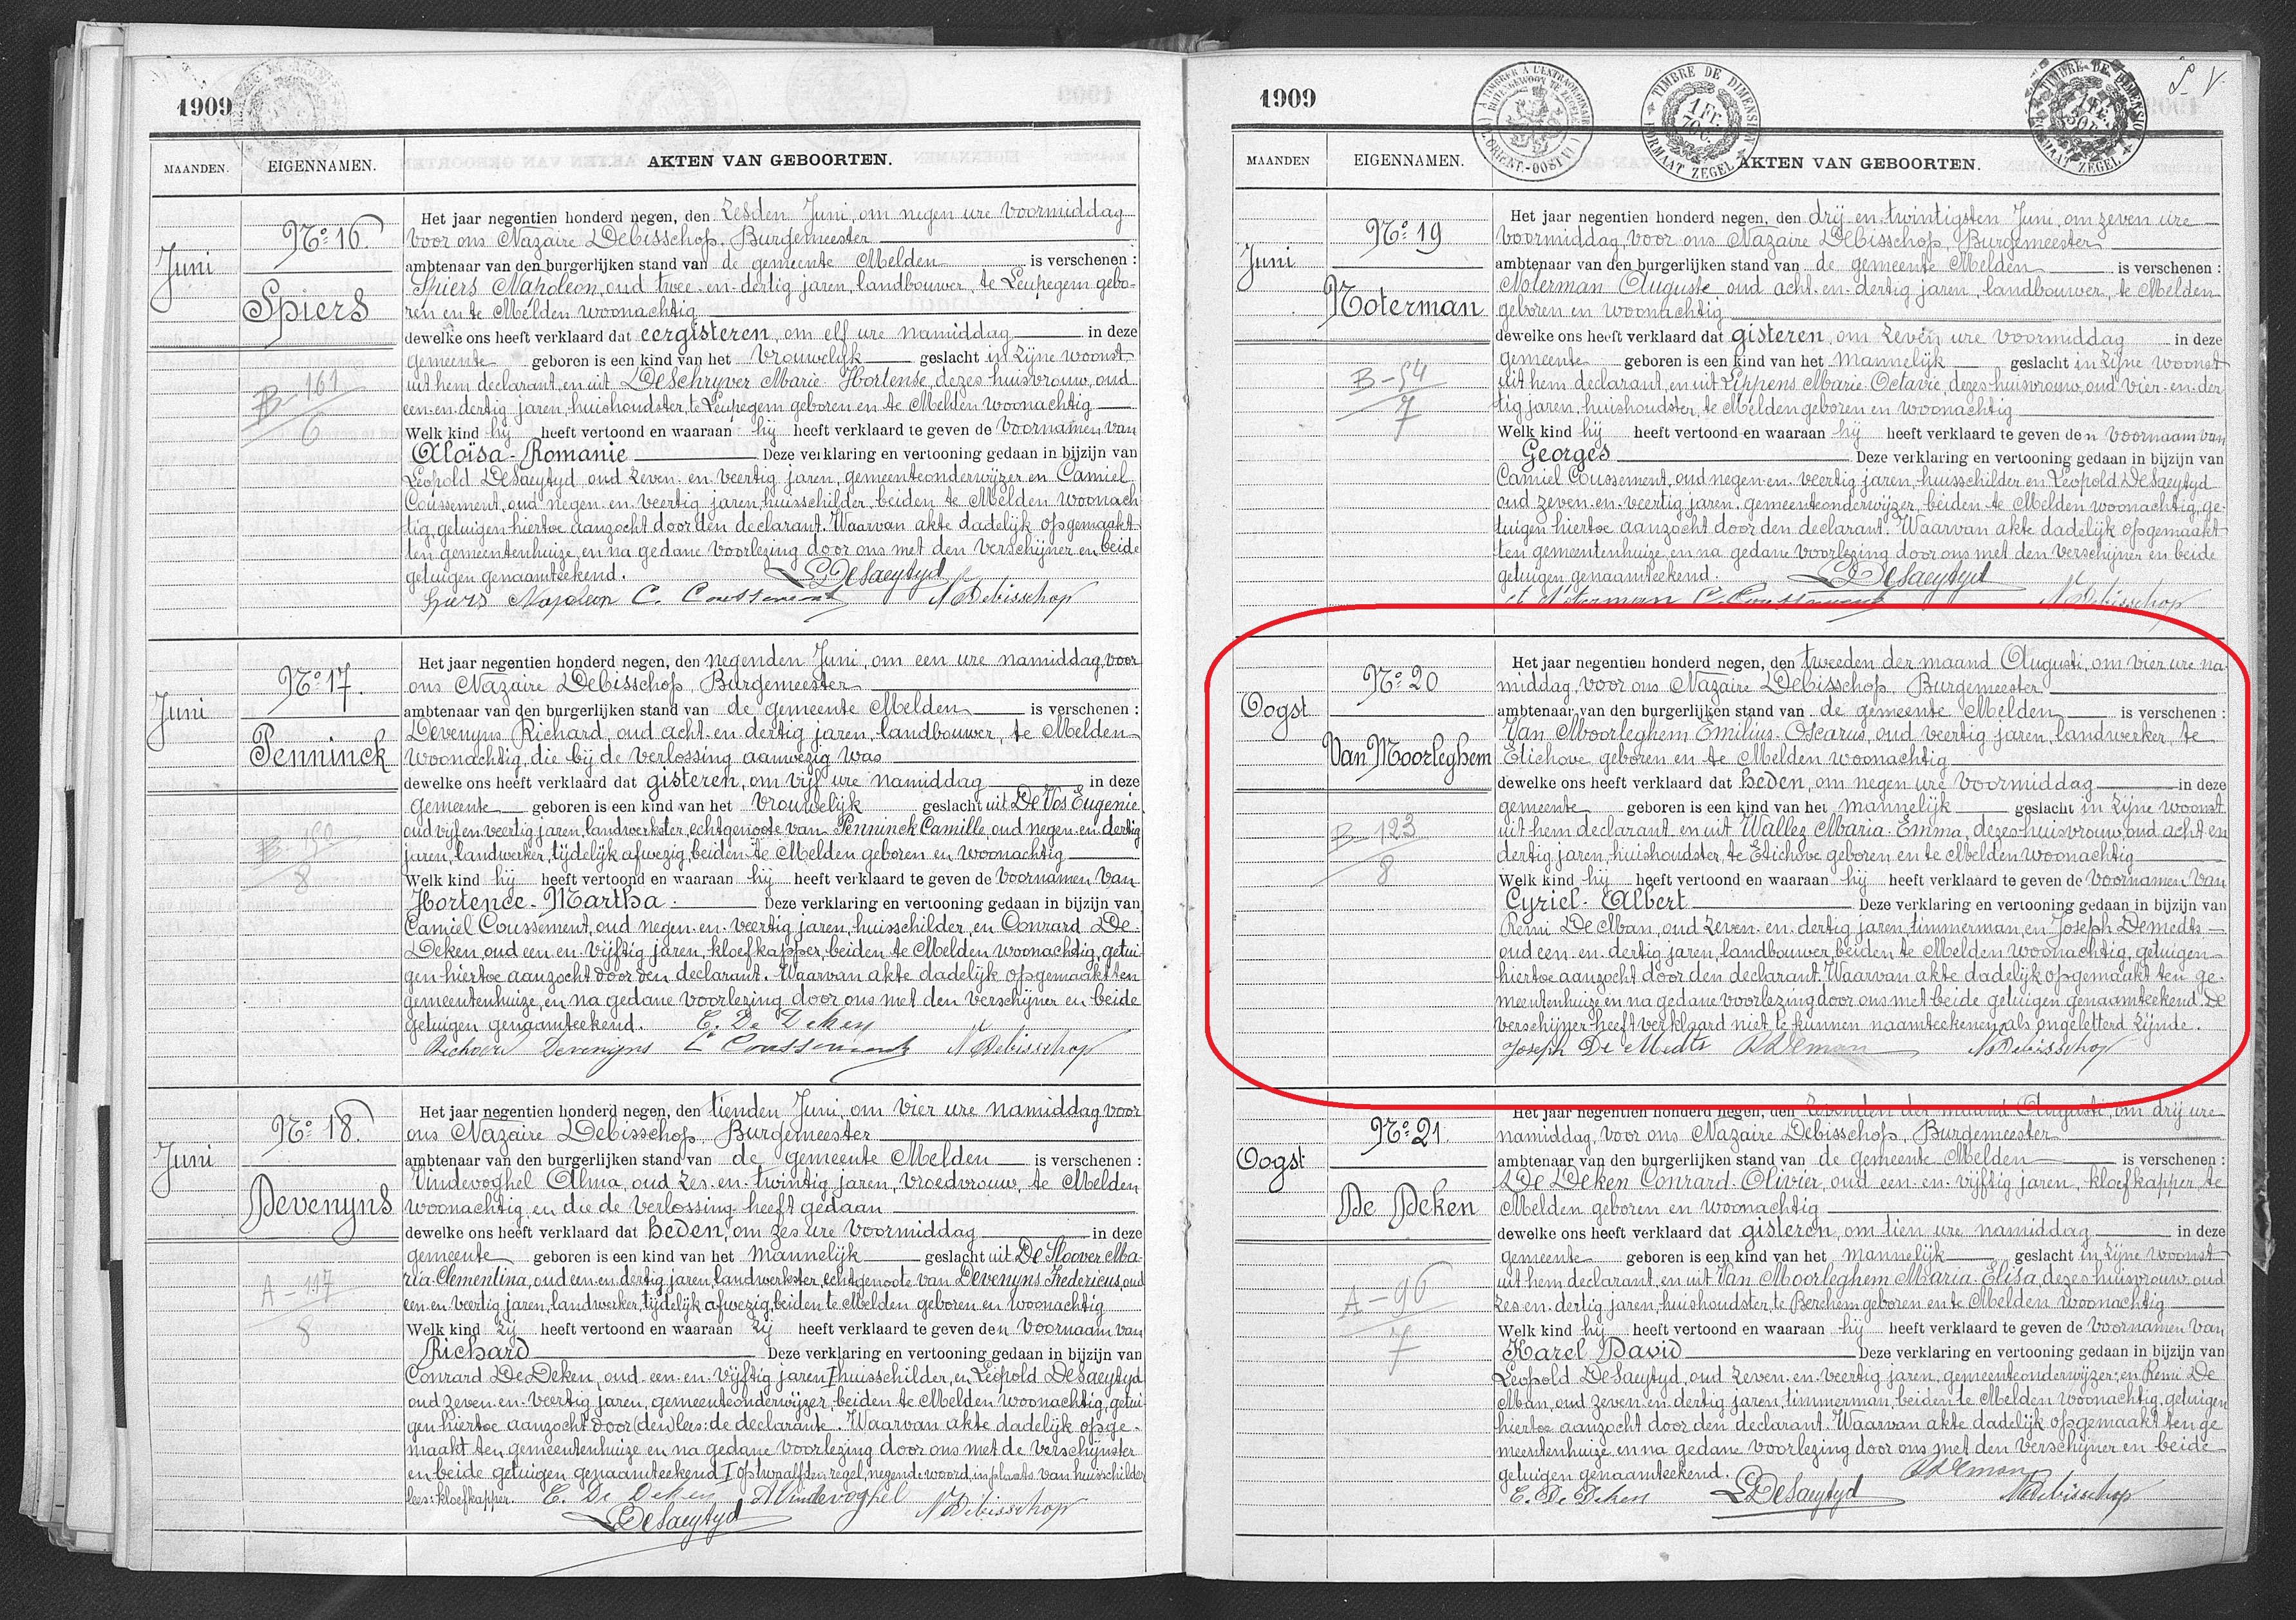 1909
MAANDEN.
EIGENNAMEN.
AKTEN VAN GEBOORTEN.
Juni
No 16.
Spiers
B-161
6
Het jaar negentien honderd negen, den zesden Juni, om negen ure voormiddag
voor ons Nazaire Debisschop, Burgemeester
ambtenaar van den burgerlijken stand van de gemeente Melden is verschenen :
Spiers Napoleon, oud twee-en-dertig jaren, landbouwer, te Leupegem gebo-
ren en te Melden woonachtig
dewelke ons heeft verklaard dat eergisteren, om elf ure namiddag in deze
gemeente geboren is een kind van het vrouwelijk geslacht in zijne woonst
uit hem declarant, en uit De Schryver Marie-Hortense, dezes huisvrouw, oud
een-en-dertig jaren, huishoudster, te Leupegem geboren en te Melden woonachtig
Welk kind hij heeft vertoond en waaraan hij heeft verklaard te geven de voornamen van
Aloïsa-Romanie Deze verklaring en vertooning gedaan in bijzijn van
Leopold DeSaeytyd, oud zeven-en-veertig jaren, gemeenteonderwijzer en Camiel
Coussement, oud negen-en-veertig jaren, huisschilder, beiden te Melden woonach
tig, getuigen hiertoe aanzocht door den declarant. Waarvan akte dadelijk opgemaakt
ten gemeentenhuize, en na gedane voorlezing door ons met den verschijner en beide
getuigen genaamteekend. L DeSaeytyd
Spiers Napoleon C. Coussement N Debisschop
Juni
No 17.
Penninck
B-150
8
Het jaar negentien honderd negen, den negenden Juni, om een ure namiddag, voor
ons Nazaire Debisschop, Burgemeester
ambtenaar van den burgerlijken stand van de gemeente Melden is verschenen :
Devenyns Richard, oud acht-en-dertig jaren, landbouwer, te Melden
woonachtig, die bij de verlossing aanwezig was
dewelke ons heeft verklaard dat gisteren, om vijf ure namiddag in deze
gemeente geboren is een kind van het vrouwelijk geslacht uit De Vos Eugenie
oud vijf en veertig jaren, landwerkster, echtgenoote van Penninck Camille, oud negen-en-dertig
jaren, landwerker, tijdelijk afwezig, beiden te Melden geboren en woonachtig
Welk kind hij heeft vertoond en waaraan hij heeft verklaard te geven de voornamen van
Hortence-Martha. Deze verklaring en vertooning gedaan in bijzijn van
Camiel Coussement, oud negen-en-veertig jaren, huisschilder, en Conrard De
Deken, oud een-en-vijftig jaren, kloefkapper, beiden te Melden woonachtig, getui
gen hiertoe aanzocht door den declarant. Waarvan akte dadelijk opgemaakt ten
gemeentenhuize, en na gedane voorlezing door ons met den verschijner en beide
getuigen genaamteekend. C. De Deken
Richard Devenijns C Coussement N Debisschop
Juni
No 18.
Devenyns
A-117
8
Het jaar negentien honderd negen, den tienden Juni, om vier ure namiddag voor
ons Nazaire Debisschop, Burgemeester
ambtenaar van den burgerlijken stand van de gemeente Melden is verschenen :
Vindevoghel Alma, oud zes-en-twintig jaren, vroedvrouw, te Melden
woonachtig en die de verlossing heeft gedaan
dewelke ons heeft verklaard dat heden, om zes ure voormiddag in deze
gemeente geboren is een kind van het mannelijk geslacht uit De Sloover Ma-
ria-Clementina, oud een-en-dertig jaren, landwerkster, echtgenoote van Devenyns Fredericus, oud
een-en-veertig jaren, landwerker, tijdelijk afwezig, beiden te Melden geboren en woonachtig
Welk kind zij heeft vertoond en waaraan zij heeft verklaard te geven den voornaam van
Richard Deze verklaring en vertooning gedaan in bijzijn van
Conrard De Deken, oud een-en-vijftig jaren I huisschilder, en Leopold DeSaeytyd
oud zeven-en-veertig jaren, gemeenteonderwijzer, beiden te Melden woonachtig, getui
gen hiertoe aanzocht door (den) lees: de declarante. Waarvan akte dadelijk opge-
maakt ten gemeentenhuize en na gedane voorlezing door ons met de verschijnster
en beide getuigen genaamteekend I op twaalfden regel, negende woord, in plaats van huisschilder
lees: kloefkapper. C. De Deken A Vindevoghel N Debisschop
L DeSaeytyd
1909
S. V
TIMBRE DE DIMENSION
FORMAAT ZEGEL
MAANDEN
EIGENNAMEN.
AKTEN VAN GEBOORTEN.
Juni
No 19
Noterman
B-54
7
Het jaar negentien honderd negen, den drij-en-twintigsten Juni, om zeven ure
voormiddag, voor ons Nazaire Debisschop, Burgemeester
ambtenaar van den burgerlijken stand van de gemeente Melden is verschenen :
Noterman Auguste oud acht-en-dertig jaren, landbouwer, te Melden
geboren en woonachtig
dewelke ons heeft verklaard dat gisteren, om zeven ure voormiddag in deze
gemeente geboren is een kind van het mannelijk geslacht in zijne woonst
uit hem declarant, en uit Lippens Marie-Octavie, dezes huisvrouw, oud vier-en-der-
tig jaren, huishoudster, te Melden geboren en woonachtig
Welk kind hij heeft vertoond en waaraan hij heeft verklaard te geven den voornaam van
Georges Deze verklaring en vertooning gedaan in bijzijn van
Camiel Coussement, oud negen-en-veertig jaren, huisschilder en Leopold DeSaeytyd
oud zeven-en-veertig jaren, gemeenteonderwijzer, beiden te Melden woonachtig, ge-
tuigen hiertoe aanzocht door den declarant. Waarvan akte dadelijk opgemaakt
ten gemeentenhuize, en na gedane voorlezing door ons met den verschijner en beide
getuigen genaamteekend. L DeSaeytyd
A Noterman C. Coussement N Debisschop
Oogst
No 20
Van Moorleghem
B-123
8
Het jaar negentien honderd negen, den tweeden der maand Augusti, om vier ure na
middag, voor ons Nazaire Debisschop, Burgemeester
ambtenaar van den burgerlijken stand van de gemeente Melden is verschenen :
Van Moorleghem Emilius-Oscarus, oud veertig jaren, landwerker, te
Etichove geboren en te Melden woonachtig
dewelke ons heeft verklaard dat heden, om negen ure voormiddag in deze
gemeente geboren is een kind van het mannelijk geslacht in zijne woonst
uit hem declarant en uit Wallez Maria-Emma, dezes huisvrouw, oud acht en
dertig jaren, huishoudster, te Etichove geboren en te Melden woonachtig
Welk kind hij heeft vertoond en waaraan hij heeft verklaard te geven de voornamen van
Cyriel-Albert Deze verklaring en vertooning gedaan in bijzijn van
Remi De Man, oud zeven-en-dertig jaren, timmerman, en Joseph Demedts
oud een-en-dertig jaren, landbouwer, beiden te Melden woonachtig, getuigen
hiertoe aanzocht door den declarant. Waarvan akte dadelijk opgemaakt ten ge-
meentenhuize, en na gedane voorlezing door ons met beide getuigen genaamteekend. De
verschijner heeft verklaard niet te kunnen naamteekenen als ongeletterd zijnde.
Joseph De Medts R DeMan N Debisschop
Oogst
No 21.
De Deken
A-96
7
Het jaar negentien honderd negen, den zevenden der maand Augusti, om drij ure
namiddag, voor ons Nazaire Debisschop, Burgemeester
ambtenaar van den burgerlijken stand van de gemeente Melden is verschenen :
De Deken Conrard-Olivier, oud een-en-vijftig jaren, kloefkapper, te
Melden geboren en woonachtig
dewelke ons heeft verklaard dat gisteren, om tien ure namiddag in deze
gemeente geboren is een kind van het mannelijk geslacht in zijne woonst
uit hem declarant, en uit Van Moorleghem Maria-Elisa, dezes huisvrouw, oud
zes-en-dertig jaren, huishoudster, te Berchem geboren en te Melden woonachtig
Welk kind hij heeft vertoond en waaraan hij heeft verklaard te geven de voornamen van
Karel David Deze verklaring en vertooning gedaan in bijzijn van
Leopold DeSaeytyd, oud zeven-en-veertig jaren, gemeenteonderwijzer, en Remi De
Man, oud zeven-en-dertig jaren, timmerman, beiden te Melden woonachtig, getuigen
hiertoe aanzocht door den declarant. Waarvan akte dadelijk opgemaakt ten ge
meentenhuize, en na gedane voorlezing door ons met den verschijner en beide
getuigen genaamteekend. R DeMan
C. De Deken L DeSaeytyd N Debisschop